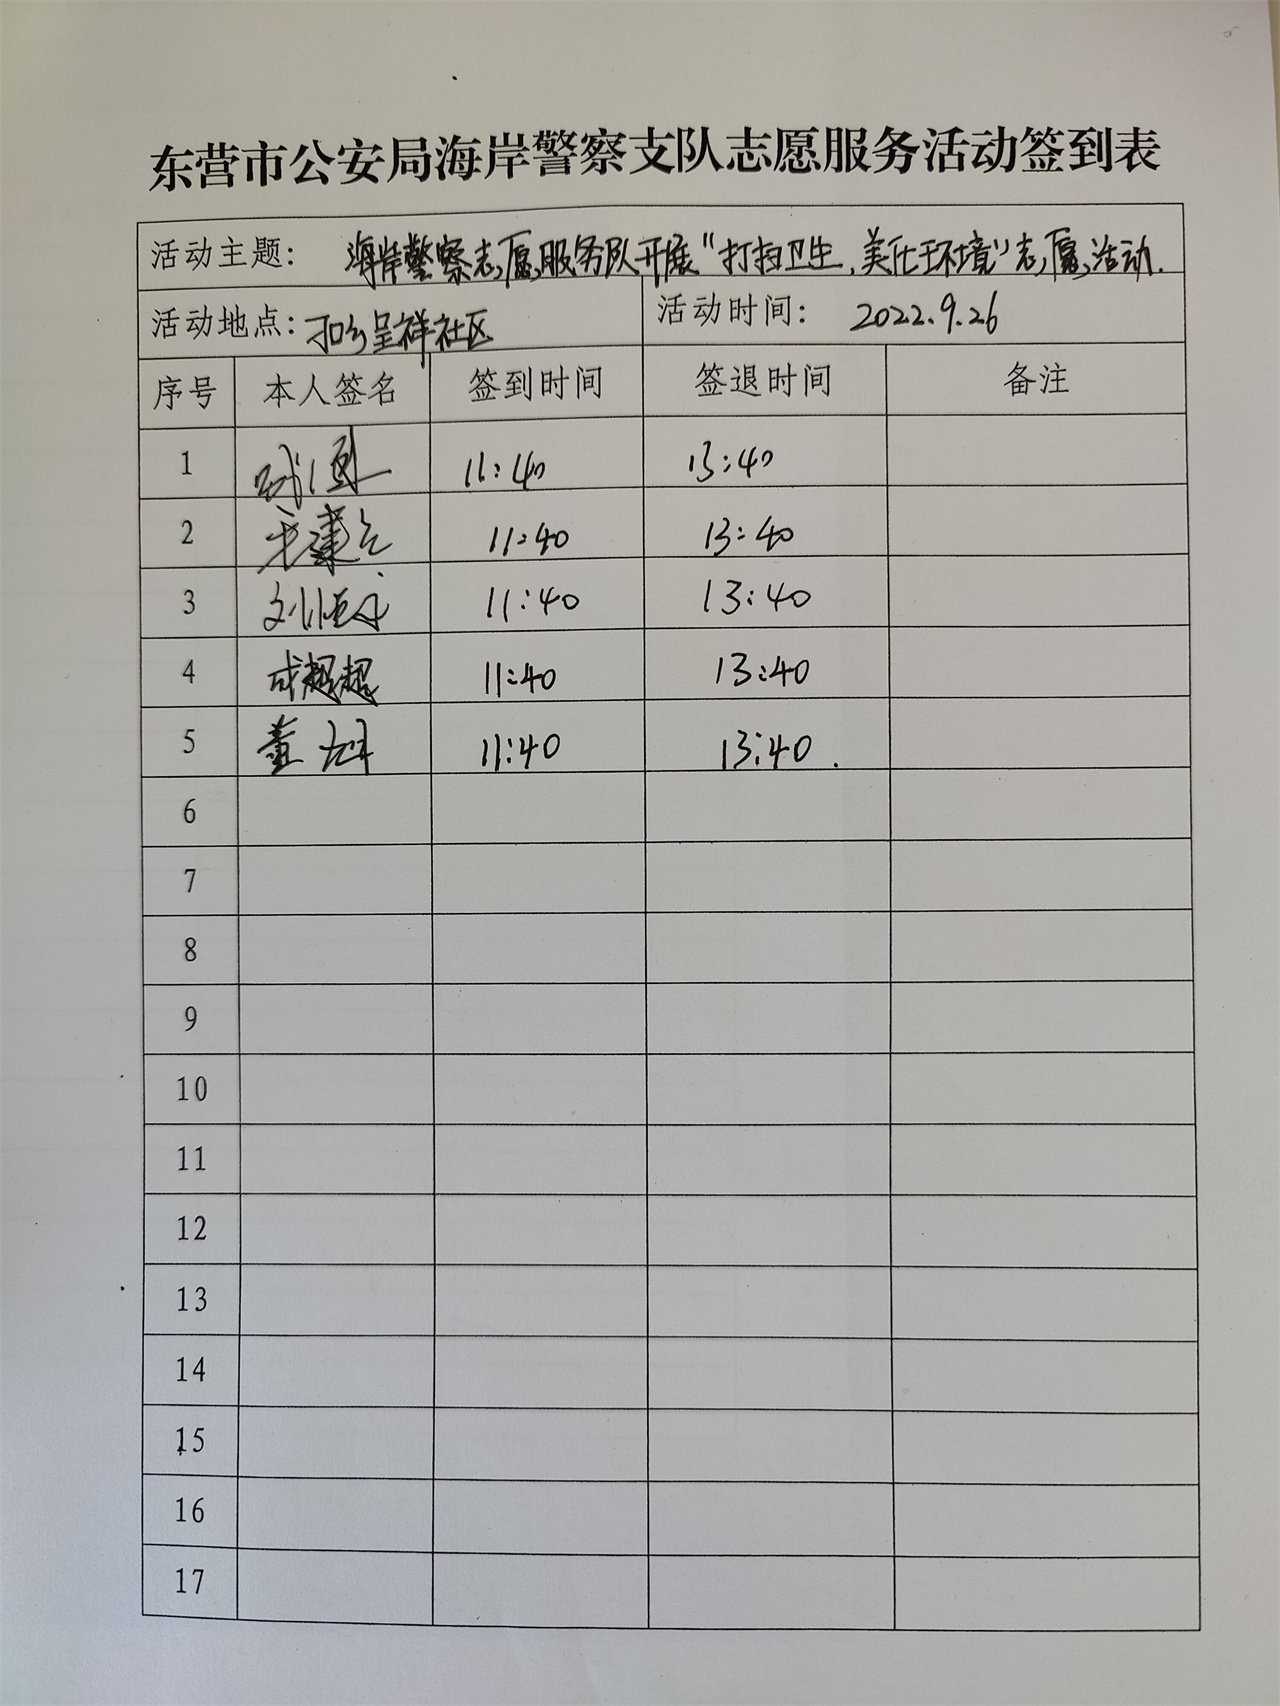 东营市公安局海岸警察支队志愿服务活动签到表
活动主题： 海岸警察志愿服务队开展“打扫卫生，美化环境”志愿活动.
活动地点： 呈祥社区 活动时间： 2022.9.26
序号 本人签名 签到时间 签退时间 备注
1 11:40 13:40
2 11:40 13:40
3 11:40 13:40
4 成超超 11:40 13:40
5 董 11:40 13:40.
6
7
8
9
10
11
12
13
14
15
16
17